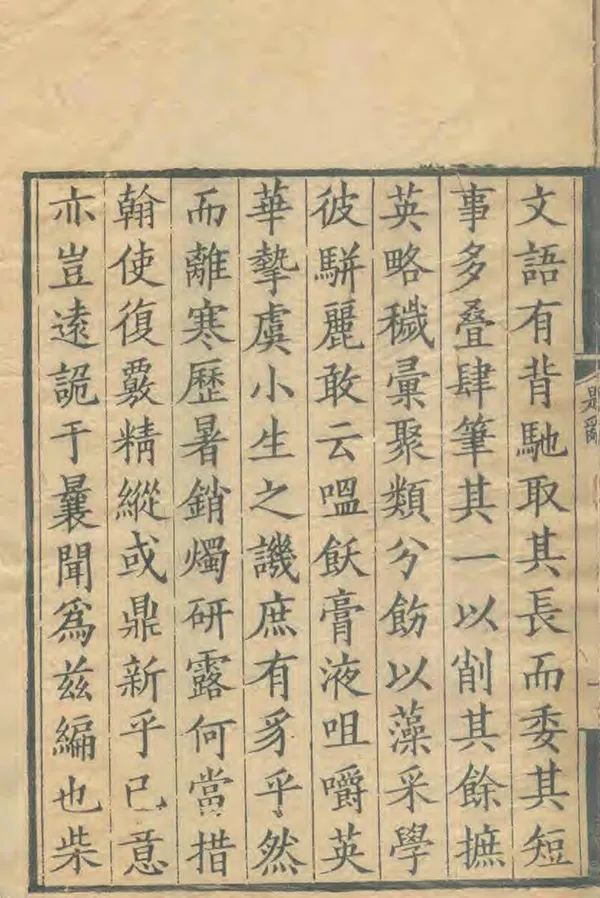 文語有背馳取其長而委其短
事多疊肆筆其一以削其餘摭
英略穢彙聚類分飭以藻采學
彼駢麗敢云嗢飫膏液咀嚼英
華摯虞小生之譏庶有豸乎然
而離寒歷暑銷燭研露何當措
翰使復覈精縱或鼎新乎已意
亦豈遠詭于曩聞爲茲編也柴
題辭
一